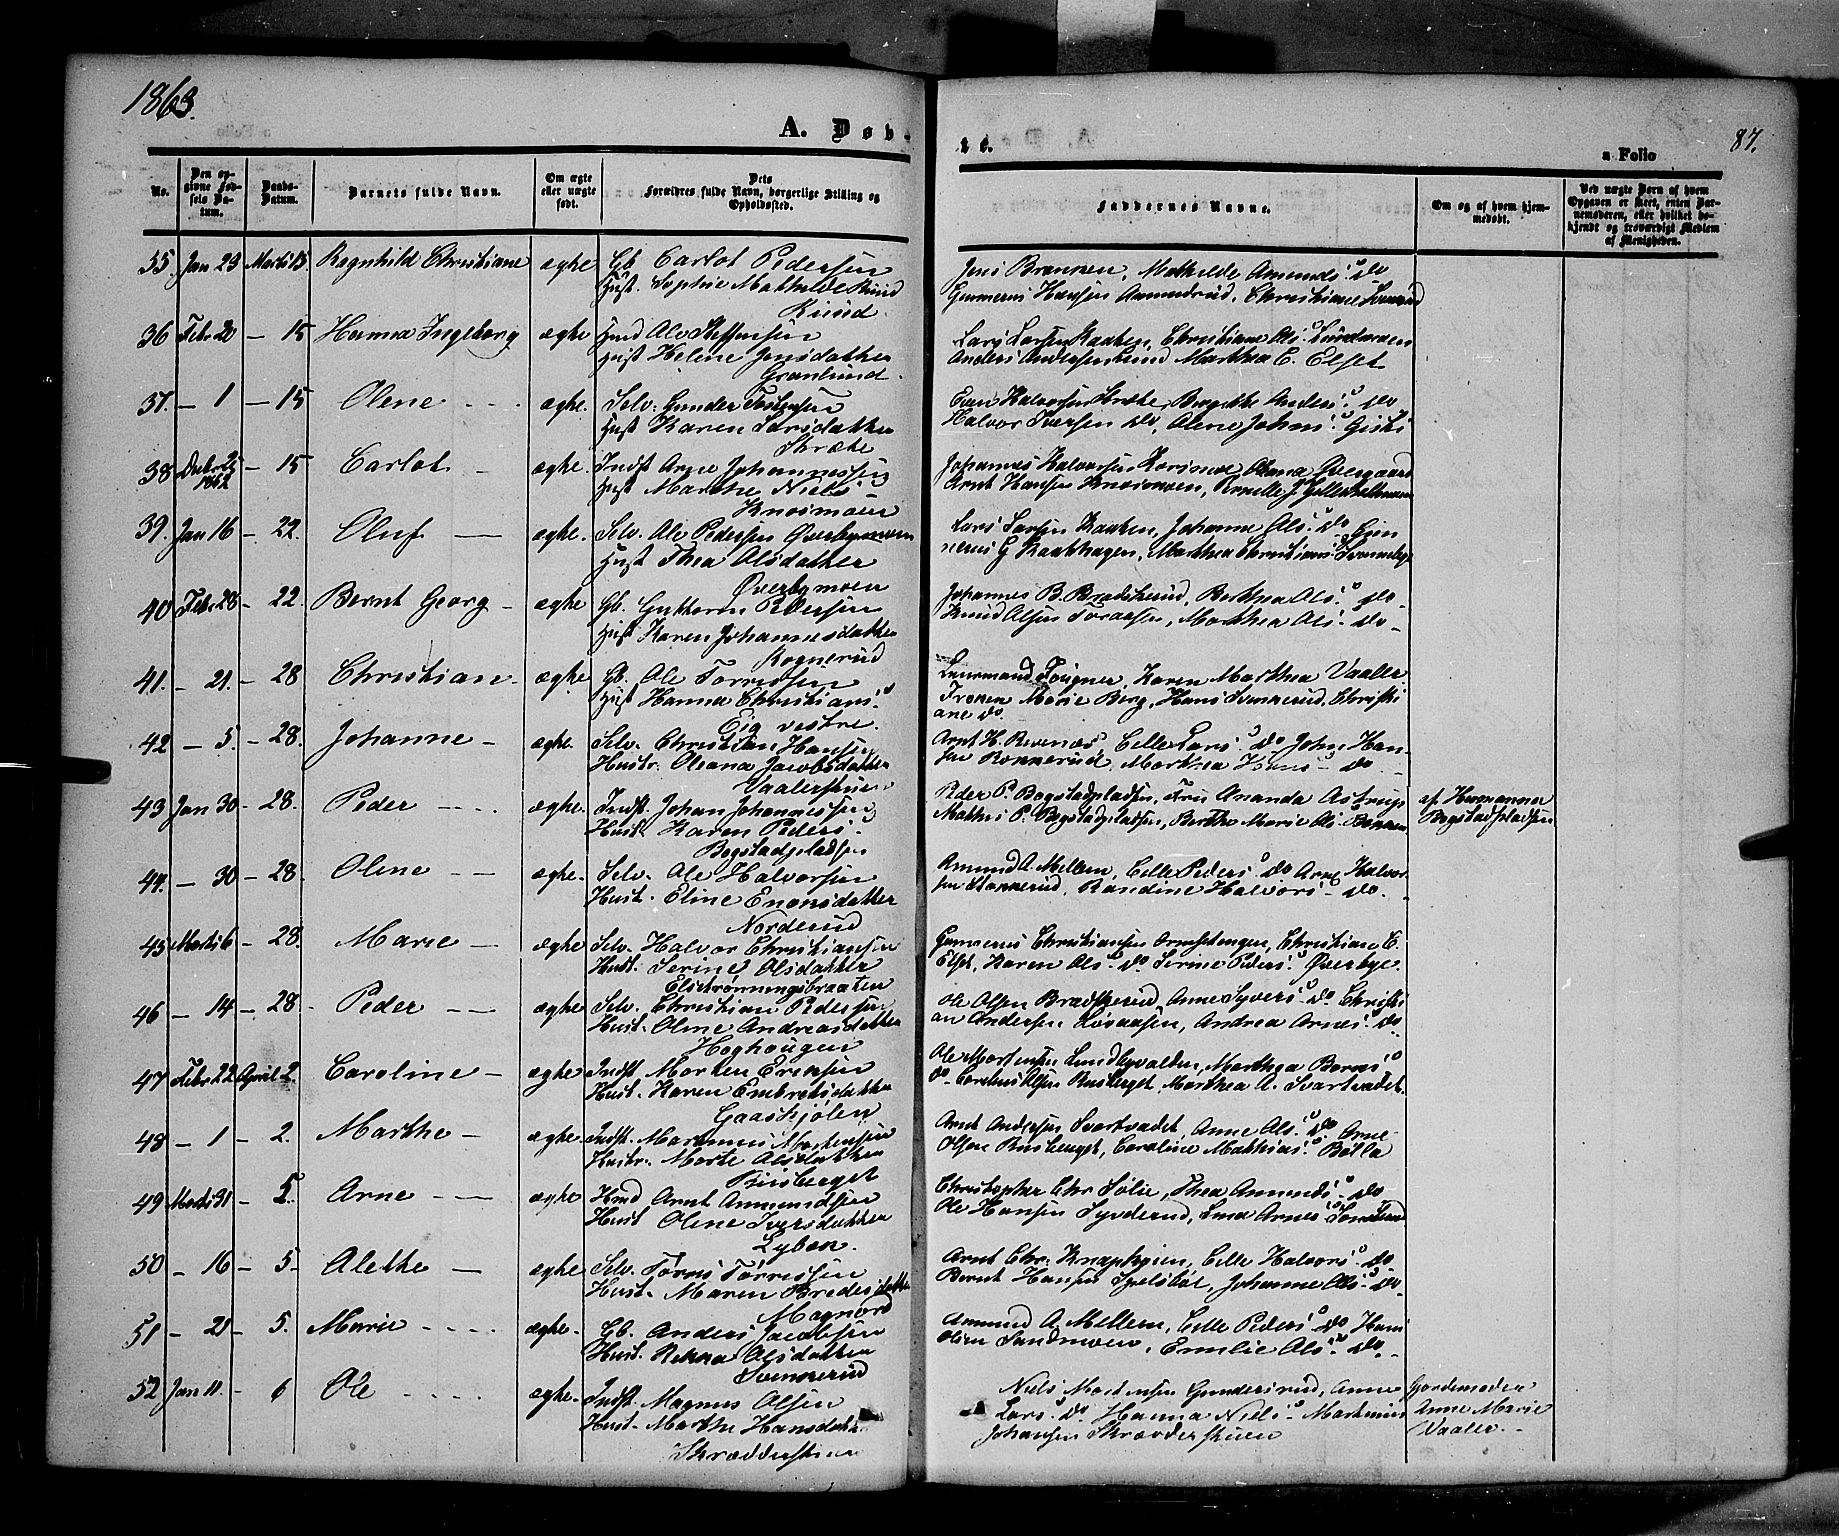 1863.
A. Døb-
te.
a Folio
87.
No.
Den op-
givne Fød-
sels Da-
tum.
Daabs-
Datum.
Barnets fulde Navn.
Om ægte
eller uægte
født.
Dets
Forældres fulde Navn, borgerlige Stilling og
Opholdssted.
Faddernes Navne.
Om og af hvem hjem-
medøbt.
Ved uægte Børn af hvem
Opgaven er skeet, enten Bar-
nemoderen, eller hvilket be-
kjendt og troværdigt Medlem
af Menigheden.
35. Jan 23 Marts 15 Ragnhild Christiane ægte Gb. Carlot Pedersen
Hust. Sophie Mathilde
Jens Mathilde Amunds. do
Gunnerus Hansen Amundrud, Christiane
36 Febr 20 - 15 Hanna Ingeborg ægte Hmd Ole Steffensen
Hust Helene Jensdatter
Granlund.
Lars Larsen Kaaten, Christiane Ols.
Anders Andersen Marthea E. Elset
37. - 1 - 15 Olene - - - ægte. Selv. Gunder
Hust Karen Larsdatter
Even Halvorsen Anders. do
Halvor Iversen do, Olene Johns.
38 Decbr 1862 - 15 Carlot - ægte. Indst Arne Johannessen
Hust Marthe Niels-
Knosmoen
Johannes Halvorsen
Arnt Hansen Knosmoen, Pernelle J.
39. Jan 16 - 22. Oluf - ægte. Selv. Ole Pedersen Øverbymoen
Hust Thea Olsdatter
Øverbymoen
Lars Larsen Kaaten, Johanne Ols. do Gun
nerus G Kaathagen, Marthea Christians.
40 Febr 28 - 22. Bernt Georg - ægte Gb. Guttorm Pedersen
Hust Karen Johannesdatter
Rognerud
Johannes B. Bradskerud, Berthea Ols. do.
Knud Olsen Marthea Ols. do
41. - 21. - 28 Christian. ægte Gb. Ole Torresen
Hust Hanna Christians.
Eig vestre.
Lensmand Fougner, Karen Marthea Vaaler
Frøken Marie Berg, Hans Svenkerud, Christi
ane do.
42 - 5. - 28. Johanne - ægte. Selv. Christian Hansen
Hustr. Oleana Jacobsdatter
Arnt H. Revenæs, Lars. do. John Han-
sen Marthea Hans- do
43 Jan 30 - 28. Peder - - - - ægte. Indst. Johan Johannessen
Hust. Karen Peders.
Bogstadpladsen
Peder P. Bogstadpladsen, Fru Amanda Astrup
Mathis P. Bogstadpladsen, Berthe Marie Ols.
af Hermanner
Bogstadpladsen
44. - 30 - 28. Oline - - ægte. Selv. Ole Halvorsen
Hust. Eline Enersdatter
Norderud
Amund A. Mellem, Peders. do Arne Halvor
sen Randine Halvors. do.
45 Marts 6 - 28. Marie - ægte Selv. Halvor Christiansen
Hust. Serine Olsdatter
Elstrønningsbraaten
Gunnerus Christiansen Christiane E.
Elset, Karen Ols. do. Serine Peders. Øverbye.
46 - 14 - 28 - Peder - - ægte Selv. Christian Pedersen
Hust. Oline Andreasdatter
Haghougen
Ole Olsen Bradskerud, Anne Syvers. do Christi
an Andersen Andrea Arnes. do
47 Febr 22 April 2. Caroline - ægte Indst Morten Eriksen
Hust. Karen Embretsdatter
Gaaskjølen
Ole Mortensen Lundbyvalden, Marthea
do. Olsen Busberget, Marthea A. Svartvadet.
48 - 1 - 2. Marthe - ægte. Indst. Marennus Mortensen
Hustr. Marte Olsdatter
Busberget
Arnt Andersen Svartvadet Anne Ols. do Arne
Olsen Busberget, Caroline Mathias.
49 Marts 31 - 5. Arne - - - ægte Hmd Arnt Ammundsen
Hust. Olene Iversdatter
Lyben.
Christopher Chr. Sølie, Thea Ammunds. do
Ole Hansen Syverud, Arnes.
50 - 16 - 5. Alethe - ægte Selv. Torres Torresen
Hust. Maren Bredesdatter
Magnord
Arnt Chr. Celle Halvors. do
Bernt Hansen Johanne Ols. do
51 - 21 - 5. Marie - - - - ægte. Gb. Anders Jacobsen
Hust. Rekka Olsdatter
Svenkerud
Amund A. Mellem, Peders. do Hans
Olsen Sandmoen, Emilie Ols. do.
52 Jan 11. - 6 Ole - - - - ægte. Indst. Magnus Olsen
Hust. Marthe Hansdatt
Skrædderstuen
Niels Mortensen Gundersrud, Anne
Lars. do. Hanna Niels. Martinius
Johansen Skrædderstuen
Jordemoder
Anne Marie
Vaaler. -